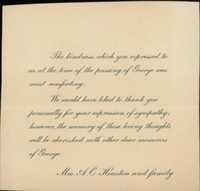 The kindness which you expressed to
us at the time of the passing of George was
most comforting.
We would have liked to thank you
personally for your expression of sympathy;
however, the memory of these loving thoughts
will be cherished with other dear memories
of George.
Mrs. A. C. Houston and family